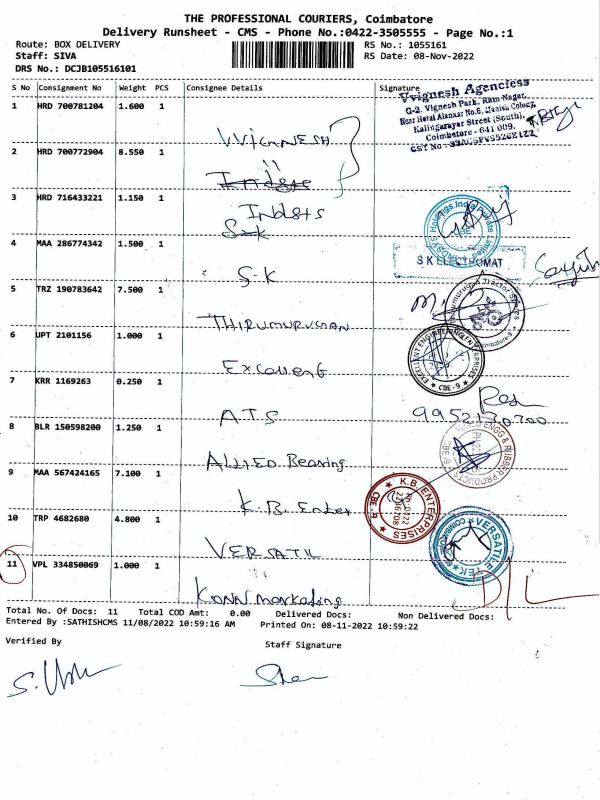 THE PROFESSIONAL COURIERS, Coimbatore
Delivery Runsheet - CMS - Phone No.:0422-3505555 - Page No.:1
Route: BOX DELIVERY
RS No.: 1055161
Staff: SIVA
RS Date: 08-Nov-2022
DRS No.: DCJB105516101
S No Consignment No Weight PCS Consignee Details Signature
Vvignesh Agenciess
G-2, Vignesh Park, Ram Nagar,
Near Hotel Alankar No.6, Manish Colony,
Kalingarayar Street (South),
Coimbatore - 641 009.
1 HRD 700781204 1.600 1
VVIGNESH
2 HRD 700772904 8.550 1
"
3 HRD 716433221 1.150 1
Indsts
4 MAA 286774342 1.500 1
S.K
S K ELECTROMAT
5 TRZ 190783642 7.500 1
THIRUMURUGAN
6 UPT 2101156 1.000 1
Excellent
EXCELLENT ENGINEERING ENTERPRISES
CBE-9
7 KRR 1169263 0.250 1
A.T.S
9952130700
8 BLR 150598200 1.250 1
ALLIED Bearing
ENGG & RUBBER PRODUCTS
9 MAA 567424165 7.100 1
K.B. Enter
K.B. ENTERPRISES
CBE-9
10 TRP 4682680 4.800 1
VERSATIL
VERSATILE TEK
11 VPL 334850069 1.000 1
D/L
Konn Marketing
Total No. Of Docs: 11 Total COD Amt: 0.00 Delivered Docs: Non Delivered Docs:
Entered By :SATHISHCMS 11/08/2022 10:59:16 AM Printed On: 08-11-2022 10:59:22
Verified By
Staff Signature